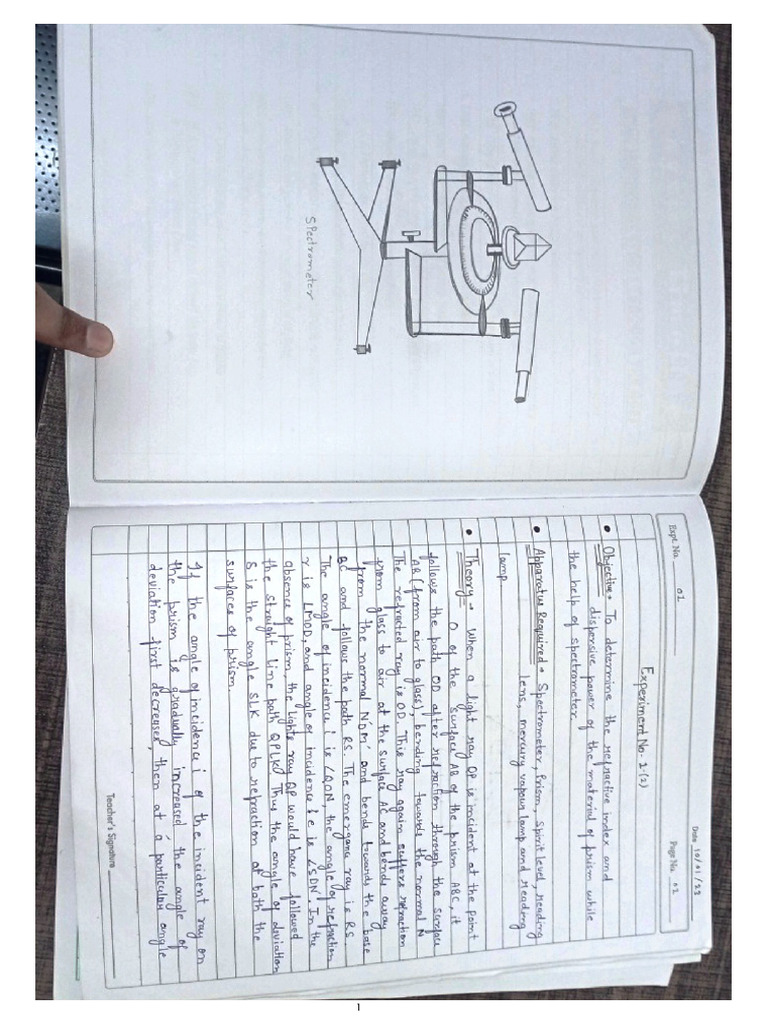 Spectrometer
Date 10/01/23
Expt. No. 02
Page No. 02
Experiment No- 2 (2)
• Objective → To determine the refractive index and
dispersive power of the material of prism while
the help of spectrometer.
• Apparatus Required → Spectrometer, Prism, Spirit level, reading
lens, mercury vapour lamp and reading
lamp.
• Theory → When a light ray QP is incident at the point
O of the surface AB of the prism ABC, it
follows the path OD after refraction through the surface
AB (from air to glass), bending towards the normal N
The refracted ray is OD. This ray again suffers refraction
from glass to air at the surface AC and bends away
from the normal N'OM' and bends towards the base
BC and follows the path RS. The emergane ray is RS
The angle of incidence i is ∠QON, the angle of refraction
r is LMOD, and angle of incidence be is ∠SDN. In the
absence of prism, the light ray QP would have followed
the straight line path QPLK. Thus the angle of deviation
S is the angle SLK due to refraction at both the
surfaces of prism.
If the angle of incidence i of the incident ray on
the prism is gradually increased the angle of
deviation first decreases, then at a particular angle
Teacher's Signature
1